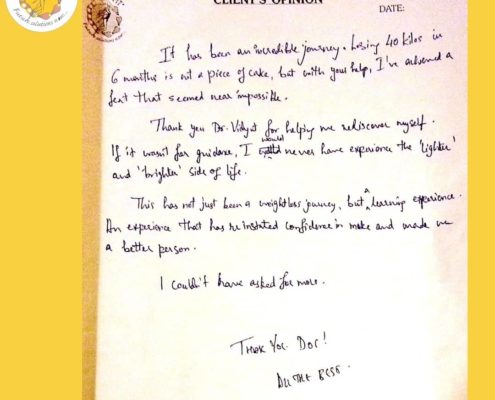 CLIENT'S OPINION
DATE:
It has been an incredible journey. Losing 40 kilos in
6 months is not a piece of cake, but with your help, I've achieved a
feat that seemed near impossible.
Thank you Dr. for helping me rediscover myself.
If it wasn't for guidance, I would never have experience the 'lighter'
and 'brighter' side of life.
This has not just been a weightloss journey, but a learning experience.
An experience that has reinstated confidence in make and made me
a better person.
I couldn't have asked for more.
Thank You Doc!
All the Best.